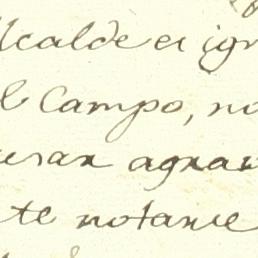 Alcalde es ign
el Campo, no
esan agnav
te notarse